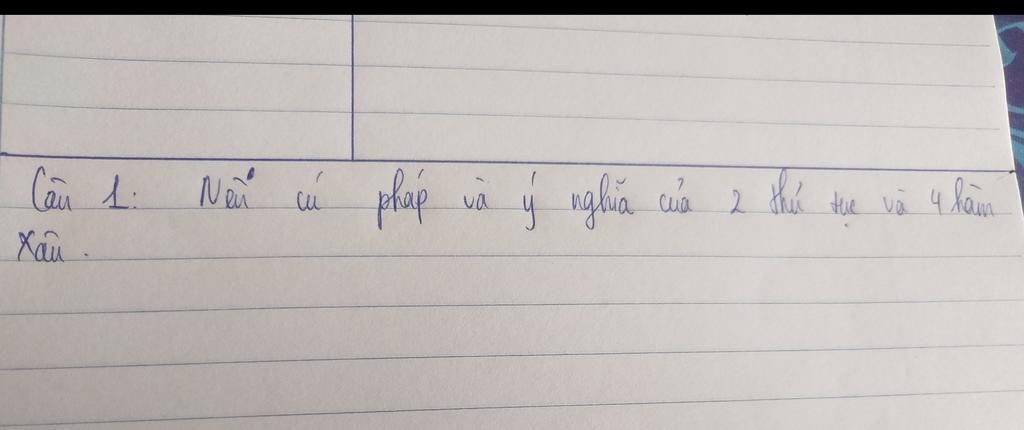 Câu 1: Nêu cú pháp và ý nghĩa của 2 thủ tục và 4 hàm
xâu.